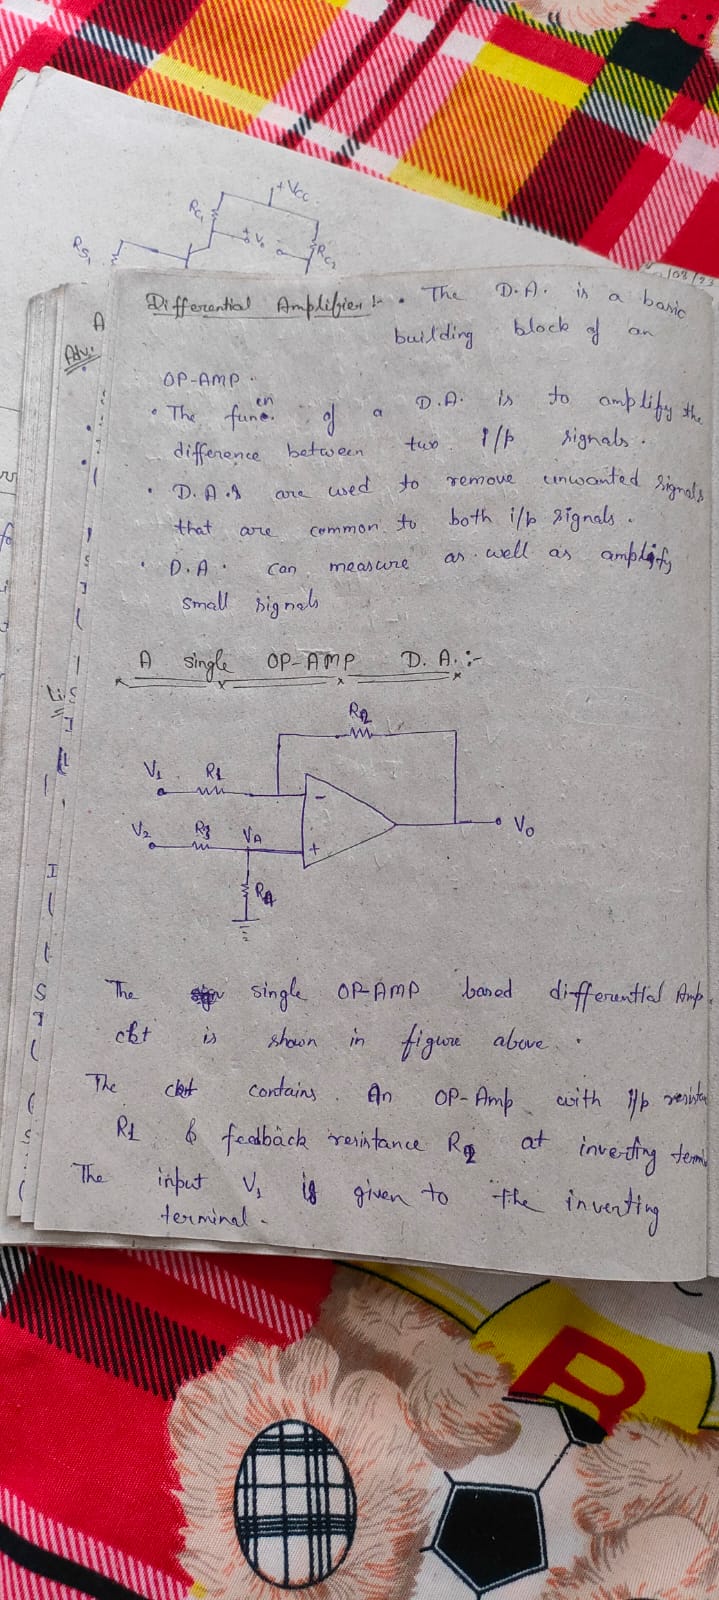 +Vcc
RC1
+ Vo -
RC2
RS1
/08/23
Differential Amplifier :- • The D.A. is a basic
building block of an
OP-AMP.
• The funcn. of a D.A. is to amplify the
difference between two i/p signals.
• D.A.s are used to remove unwanted signals
that are common to both i/p signals.
• D.A. can measure as well as amplify
small signals
A single OP-AMP D.A. :-
R2
V1 R1
-
V2 R3 VA
+
Vo
R4
The single OP-AMP based differential Amp.
ckt is shown in figure above.
The ckt contains An OP-Amp with i/p resista
R1 & feedback resistance R2 at inverting termi
The input V1 is given to the inverting
terminal.
A
Adv:
B